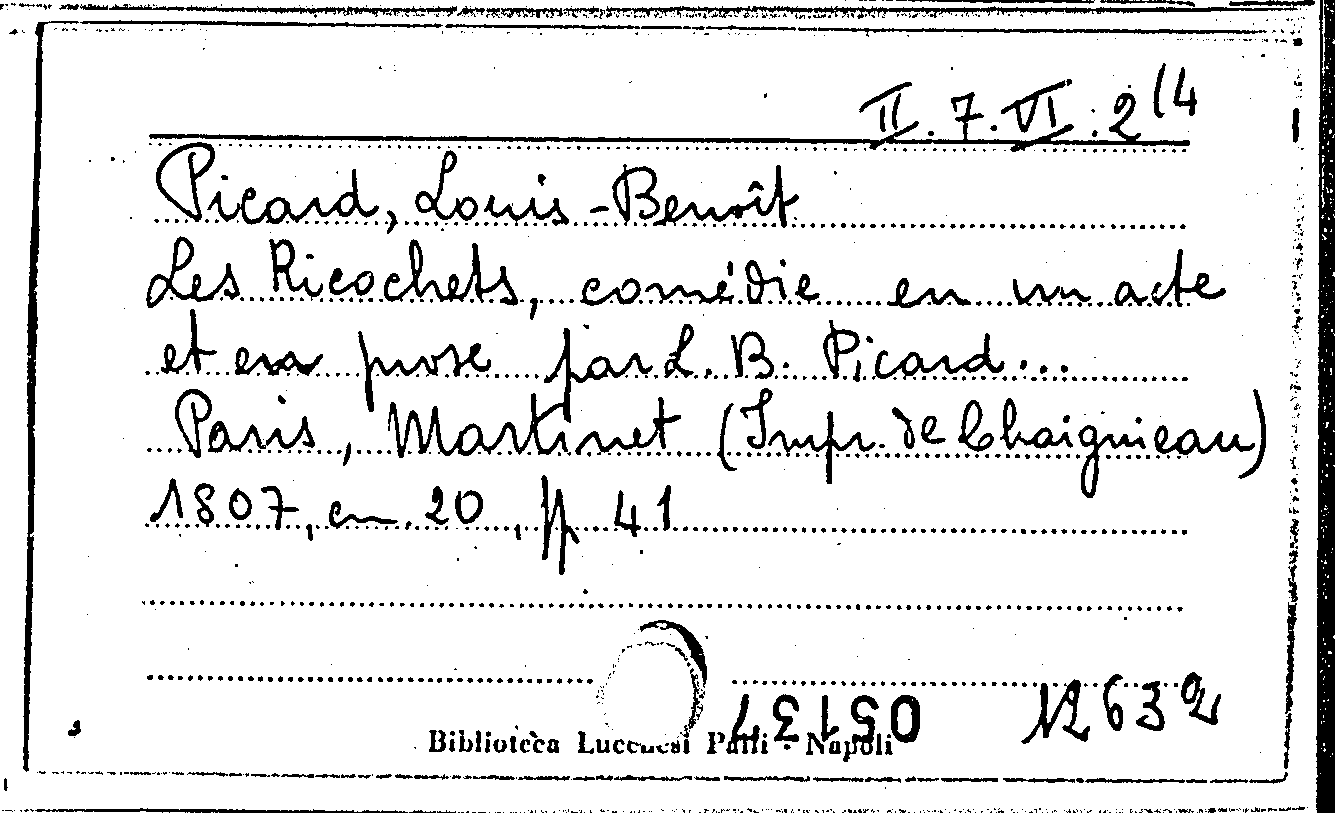 II. 7. VI. 2(4
Picard, Louis-Benoît
Les Ricochets, comédie en un acte
et en prose par L. B. Picard...
Paris, Martinet (Impr. de Chaignieau)
1807, cm. 20, pp 41
05137 12632
Biblioteca Lucchesi Palli - Napoli